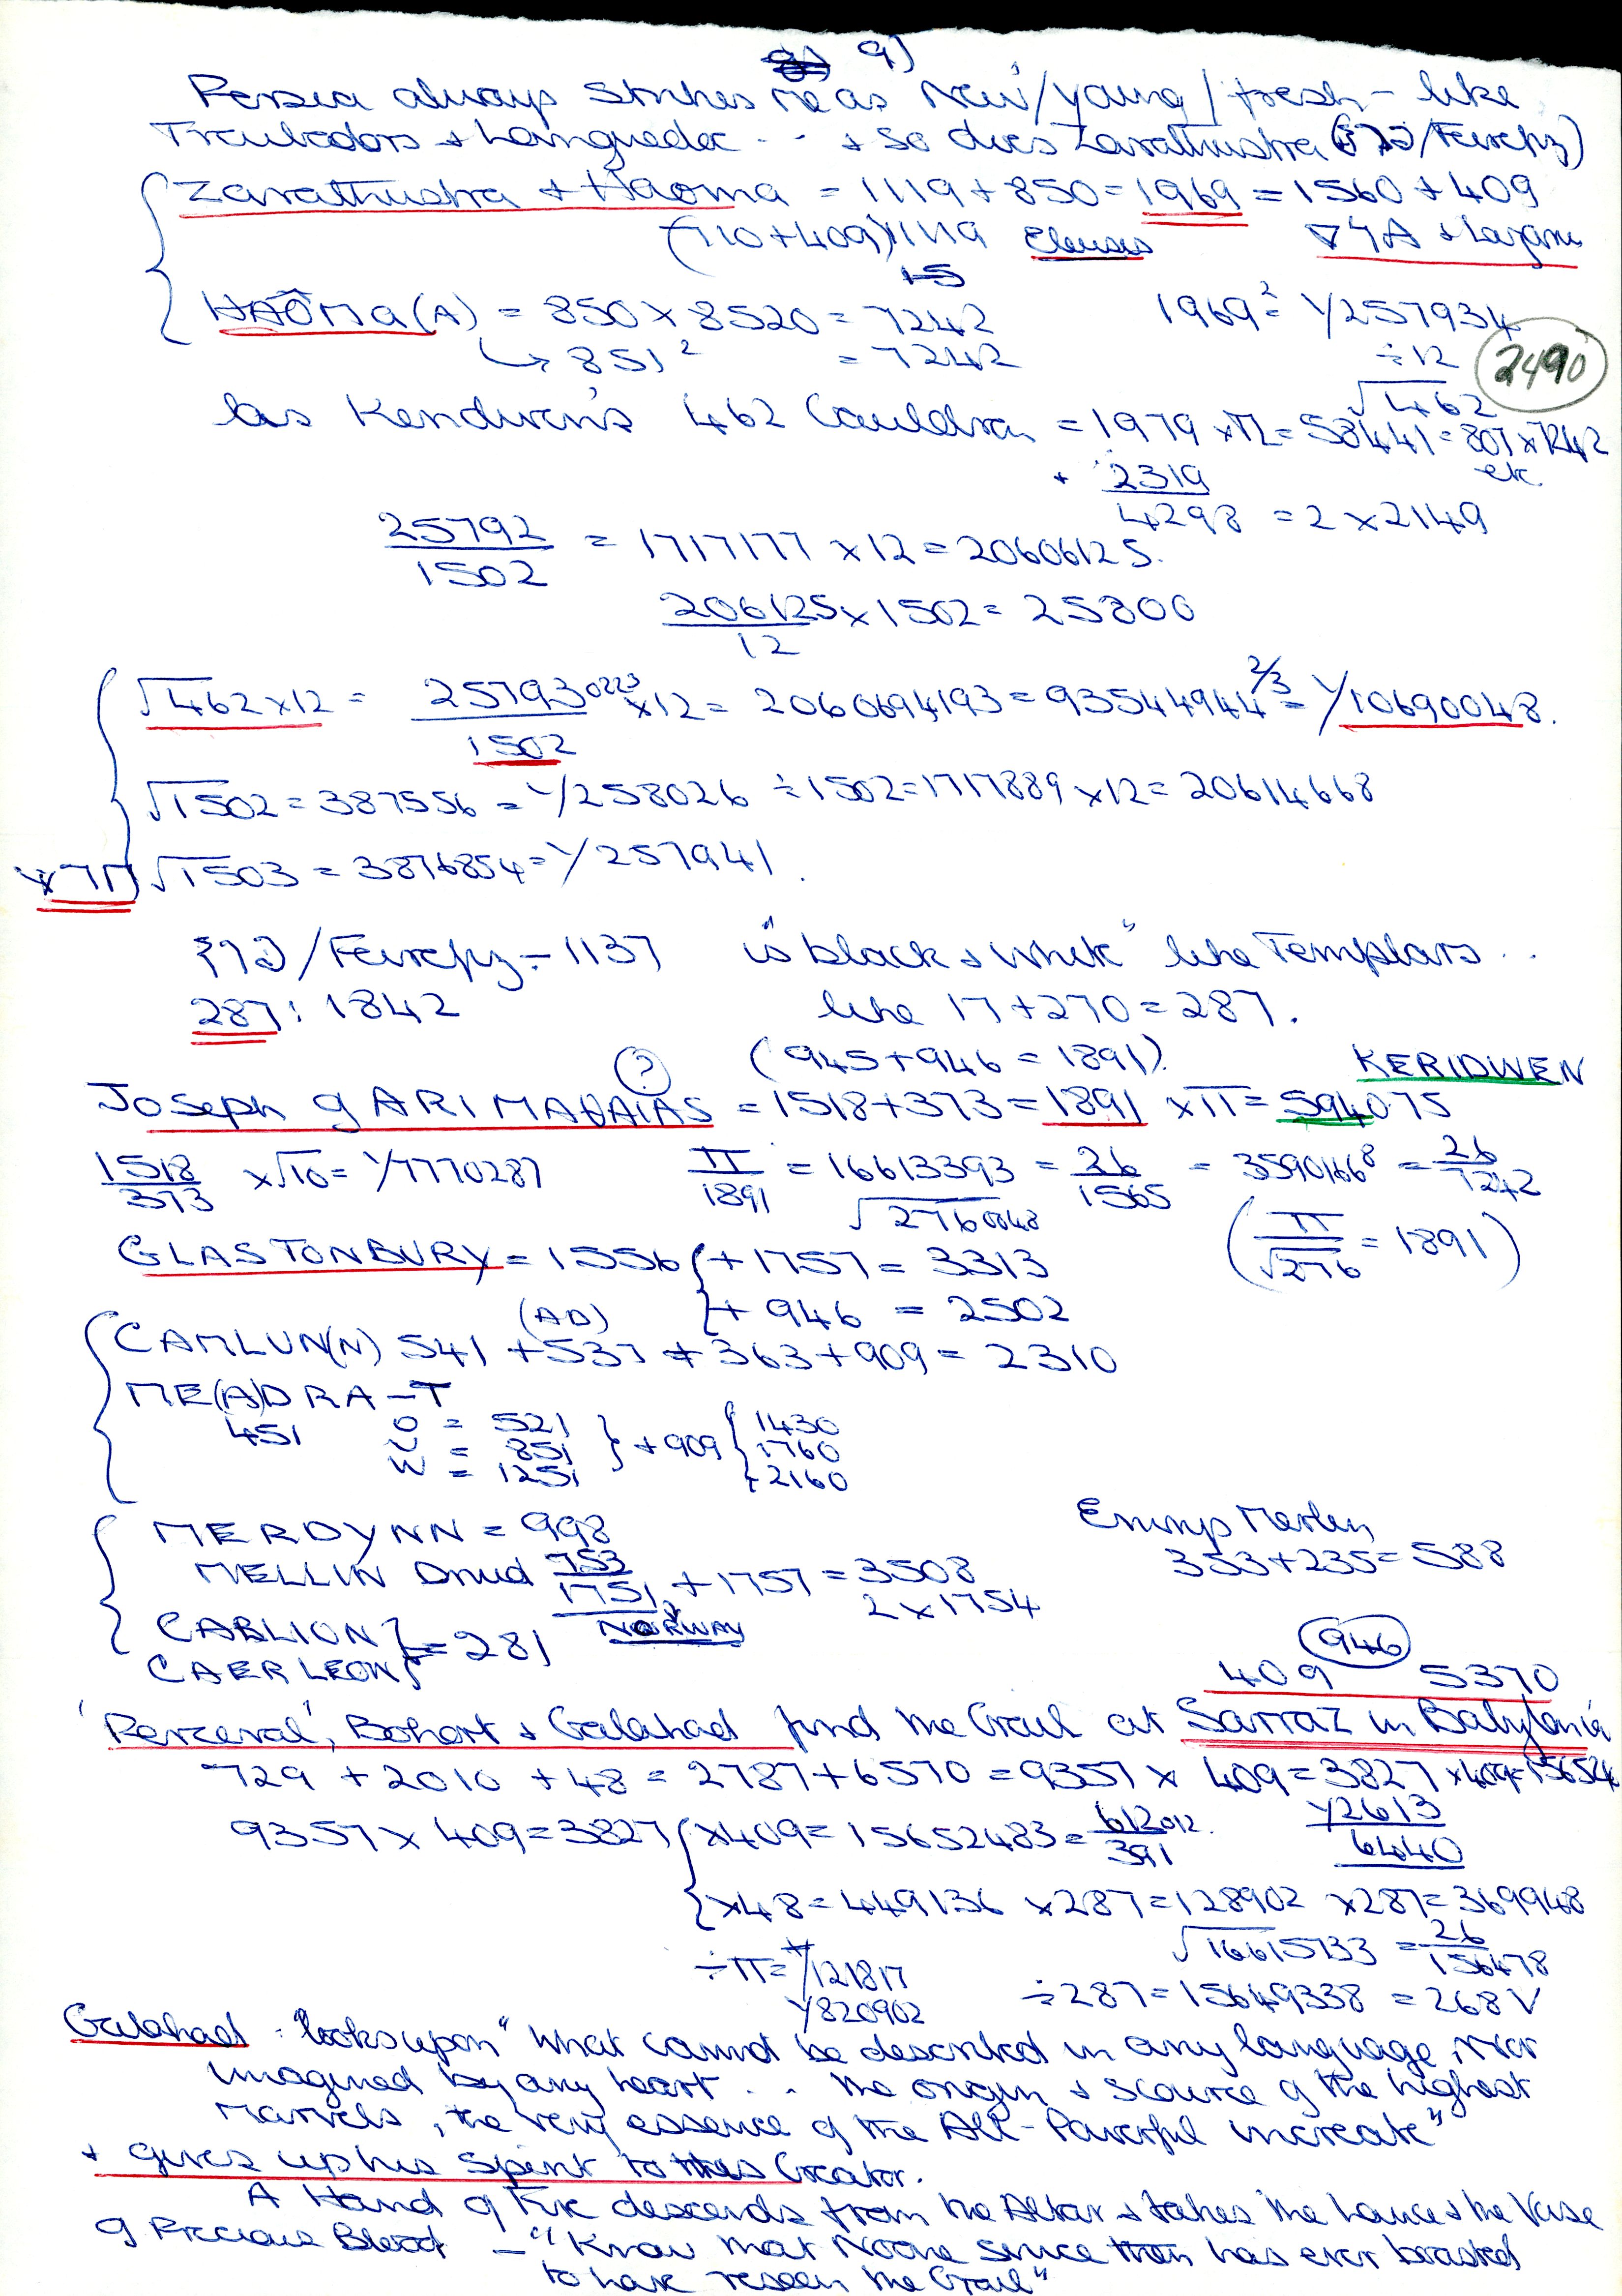 9)
Persia always strikes me as New/young/fresh - like
Troubadors + Languedoc - - + so does Zarathustra (/Feirefiz)
Zarathustra + Haoma = 1119 + 850 = 1969 = 1560 + 409
(710+409) 1119
HAOMA (A) = 850 x 8520 = 7242
1969² = 1/257934
↳ 851² = 7242
÷12
2490
√462
462 Cauldron = 1979 x π = 58441 = 807 x 7242
etc.
+ 2319
4298 = 2 x 2149
25792/1502 = 1717177 x 12 = 2060612 5.
206125/12 x 1502 = 25800
√462 x 12 = 25793 0223/1502 x 12 = 2060694193 = 93544944 2/3 = 1/10690048.
√1502 = 387556 = 1/258026 ÷ 1502 = 1717889 x 12 = 20614668
√1503 = 3876854 = 1/257941.
/Feirefiz = 1137 is "black & White" like Templars . .
287: 1842 like 17 + 270 = 287.
(?) (945 + 946 = 1891) KERIDWEN
Joseph of ARIMAθAIAS = 1518 + 373 = 1891 x π = 5940.75
1518/373 x √10 = 1/7770287 π/1891 = 16613393 = 26/1565 = 3590166⁸ = 26/7242
√2760048
(π/√276 = 1891)
GLASTONBURY = 1556 { + 1757 = 3313
+ 946 = 2502
(AD)
CAMLUN(N) 541 + 537 + 363 + 909 = 2310
ME(A)DRA - T
451 O = 521 } + 909 { 1430
U = 851 1760
W = 1251 2160
MERDYNN = 998
Emrys Merlin
MELLIN Druid 753
353 + 235 = 588
1751 + 1757 = 3508
2 x 1754
NORWAY
CARLION } = 281
CAER LEON
946
409 5370
'Perceval', Bohort & Galahad find the Grail at Sarraz in Babylonia
729 + 2010 + 48 = 2787 + 6570 = 9357 x 409 = 3827 x 409 = 156524
1/2613
6440
9357 x 409 = 3827 { x 409 = 15652483 = 612012/391
x 48 = 449136 x 287 = 128902 x 287 = 369948
√16615733 = 26/156478
÷ π = 1/121817
1/820902
÷ 287 = 15649338 = 268 V
Galahad: "looks upon" What cannot be described in any language, nor
imagined by any heart . . the origin & source of the highest
marvels, the very essence of the All-Powerful increate"
+ gives up his spirit to his Creator.
A Hand of Fire descends from the Altar & takes the Lance & the Vase
of Precious Blood - "Know that Noone since then has ever boasted
to have reseen the Grail"